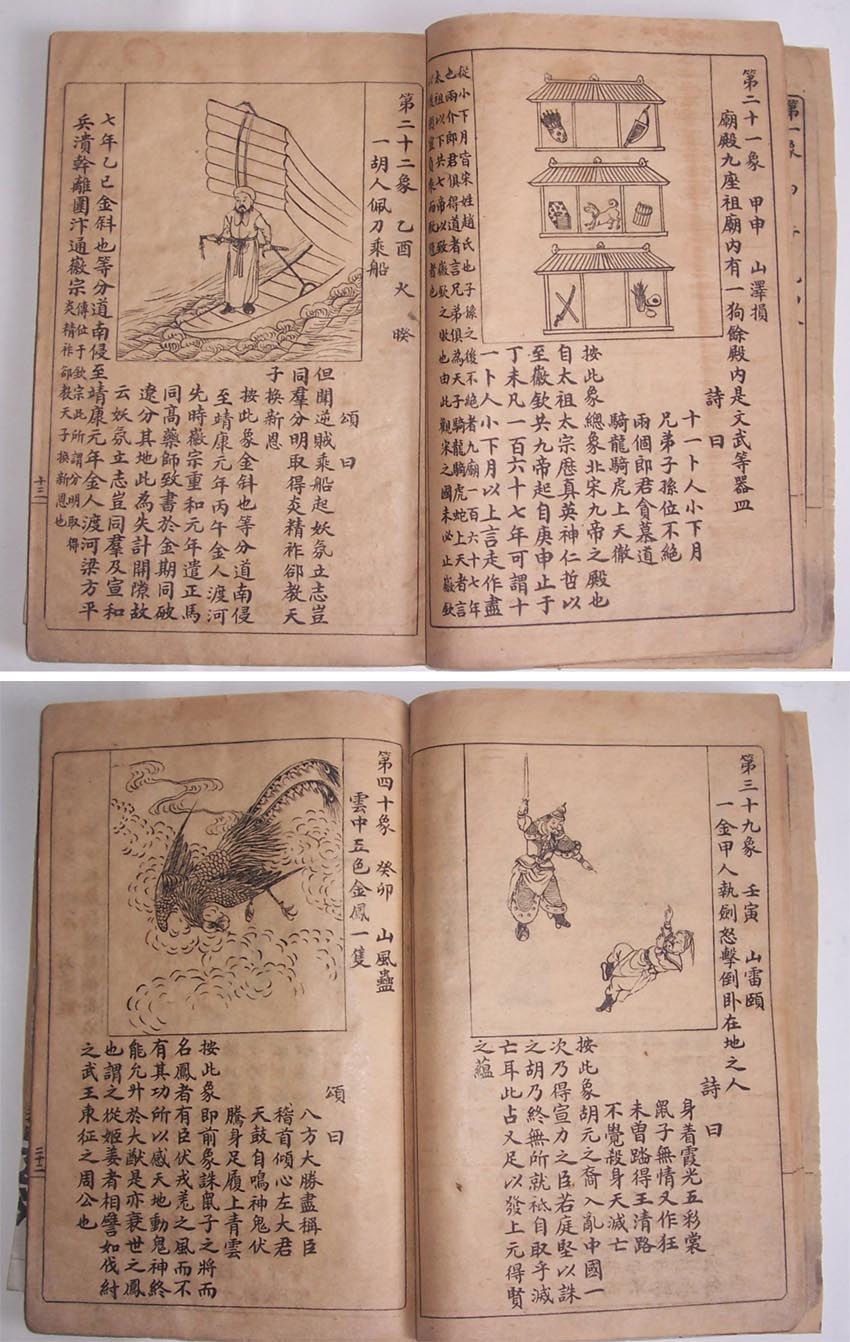 第二十一象　甲申　山澤損
廟殿九座祖廟內有一狗餘殿內是文武等器皿
詩曰
十一卜人小下月
兄弟子孫位不絕
兩個郎君貪墓道
騎龍騎虎上天徹
按此象總象北宋九帝之殿也
自太祖太宗歷真英神仁哲以
至徽欽共九帝起自庚申止于
丁未凡一百六十七年可謂十
一卜人小下月以上言走作盡
第二十二象　乙酉　火　暌
一胡人佩刀乘船
頌曰
但聞逆賊乘船起妖氛立志豈
同羣分明取得炎精祚郤教天
子換新恩
按此象金斜也等分道南侵
至靖康元年丙午金人渡河
先時徽宗重和元年遣正馬
同高藥師致書於金期同破
遼分其地此為失計開隙故
云妖氛立志豈同羣及宣和
七年乙巳金斜也等分道南侵至靖康元年金人渡河梁方平
兵潰幹離圍汴通徽宗傳位于欽宗此所謂分明取得
炎精祚郤教天子換新恩也
十三
第三十九象　壬寅　山雷頤
一金甲人執劍怒擊倒卧在地之人
詩曰
身着霞光五彩裳
鼠子無情又作狂
未曾踏得王清路
不覺殺身天滅亡
按此象胡元之裔入亂中國一
次乃得宣力之臣若庭堅以誅
之胡乃終無所就袛自取乎滅
亡耳此占又足以發上元得賢
之蘊
第四十象　癸卯　山風蠱
雲中五色金鳳一隻
頌曰
八方大勝盡稱臣
稽首傾心左大君
天鼓自鳴神鬼伏
騰身足履上青雲
按此象即前象誅鼠子之將而
名鳳者有臣伏戎羌之風而不
有其功所以感天地動鬼神終
能允升於大猷是亦衰世之鳳
也謂之從姬姜者相譬如伐紂
之武王東征之周公也
三十二